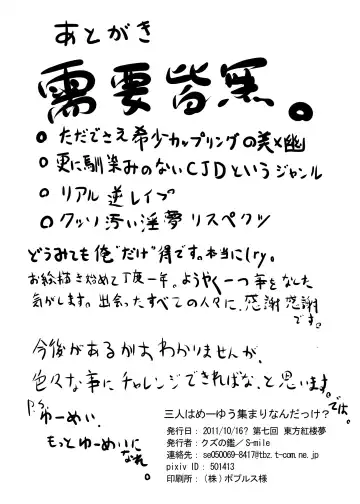 あとがき
需要皆無。
ただでさえ希少カップリングの美×幽
更に馴染みのないCJDというジャンル
リアル逆レイプ
クッソ汚い淫夢リスペクツ
どうみても俺"だけ"得です。本当にry。
お絵描き始めて丁度一年。ようやく一つ事をなした
気がします。出会ったすべての人々に、感謝感謝
です。
今後があるかおわかりませんが、
色々な事にチャレンジできればな、と思います。
では。
P.S.
ゆーめい、
もっとゆーめいに
なぁれ。
三人はめーゆう集まりなんだっけ?
発行日:2011/10/16? 第七回 東方紅楼夢
発行者:クズの鑑/S-mile
連絡先:se050069-8417@tbz.t-com.ne.jp
pixiv ID:501413
印刷所:(株)ポプルス様